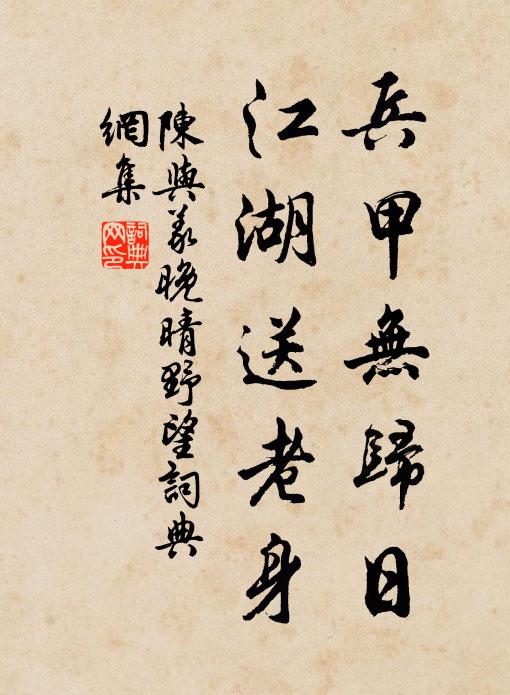 兵甲無歸日
江湖送老身
陳與義晚晴野望詞典
網集
詞典
网印